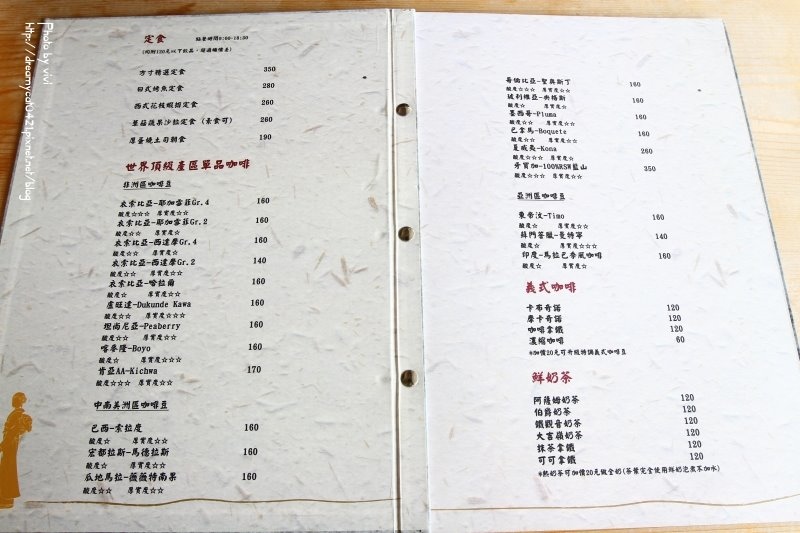 Photo by vivi
http://dreamycat0421.pixnet.net/blog
定食 供餐時間9:00-18:30
(可附120元以下飲品，超過補價差)
方寸精選定食 350
日式烤魚定食 280
西式花枝蝦姆定食 260
堇菇蔬果沙拉定食 (素食可) 260
厚蛋燒土司朝食 190
世界頂級產區單品咖啡
非洲區咖啡豆
衣索比亞-耶加雪菲Gr.4 160
酸度☆☆☆ 厚實度☆☆
衣索比亞-耶加雪菲Gr.2 160
酸度☆☆☆ 厚實度☆
衣索比亞-西達摩Gr.4 160
酸度☆☆ 厚實度☆☆
衣索比亞-西達摩Gr.2 140
酸度☆☆ 厚實度☆☆
衣索比亞-哈拉爾 160
酸度☆ 厚實度☆☆☆
盧旺達-Dukunde Kawa 160
酸度☆☆ 厚實度☆☆☆
坦尚尼亞-Peaberry 160
酸度☆☆ 厚實度☆☆
喀麥隆-Boyo 160
酸度☆ 厚實度☆☆☆
肯亞AA-Kichwa 170
酸度☆☆☆ 厚實度☆☆
中南美洲區咖啡豆
巴西-索拉度 160
酸度☆ 厚實度☆☆
宏都拉斯-馬德拉斯 160
酸度☆☆ 厚實度☆☆
瓜地馬拉-薇薇特南果 160
酸度☆☆ 厚實度☆☆
哥倫比亞-聖奧斯丁 160
酸度☆☆☆ 厚實度☆☆
玻利維亞-街格斯 160
酸度☆ 厚實度☆
墨西哥-Pluma 160
酸度☆☆ 厚實度☆☆
巴拿馬-Boquete 160
酸度☆☆ 厚實度☆☆
夏威夷-Kona 260
酸度☆☆☆ 厚實度☆
牙買加-100%RSW藍山 350
酸度☆☆☆ 厚實度☆☆
亞洲區咖啡豆
東帝汶-Timo 160
酸度☆ 厚實度☆☆
蘇門答臘-曼特寧 140
酸度☆ 厚實度☆☆☆
印度-馬拉巴季風咖啡 160
酸度☆ 厚實度☆
義式咖啡
卡布奇諾 120
摩卡奇諾 120
咖啡拿鐵 120
濃縮咖啡 60
*加價20元可升級特調義式咖啡豆
鮮奶茶
阿薩姆奶茶 120
伯爵奶茶 120
鐵觀音奶茶 120
大吉嶺奶茶 120
抹茶拿鐵 120
可可拿鐵 120
*熱奶茶可加價20元做全奶(茶葉完全使用鮮奶泡煮不加水)